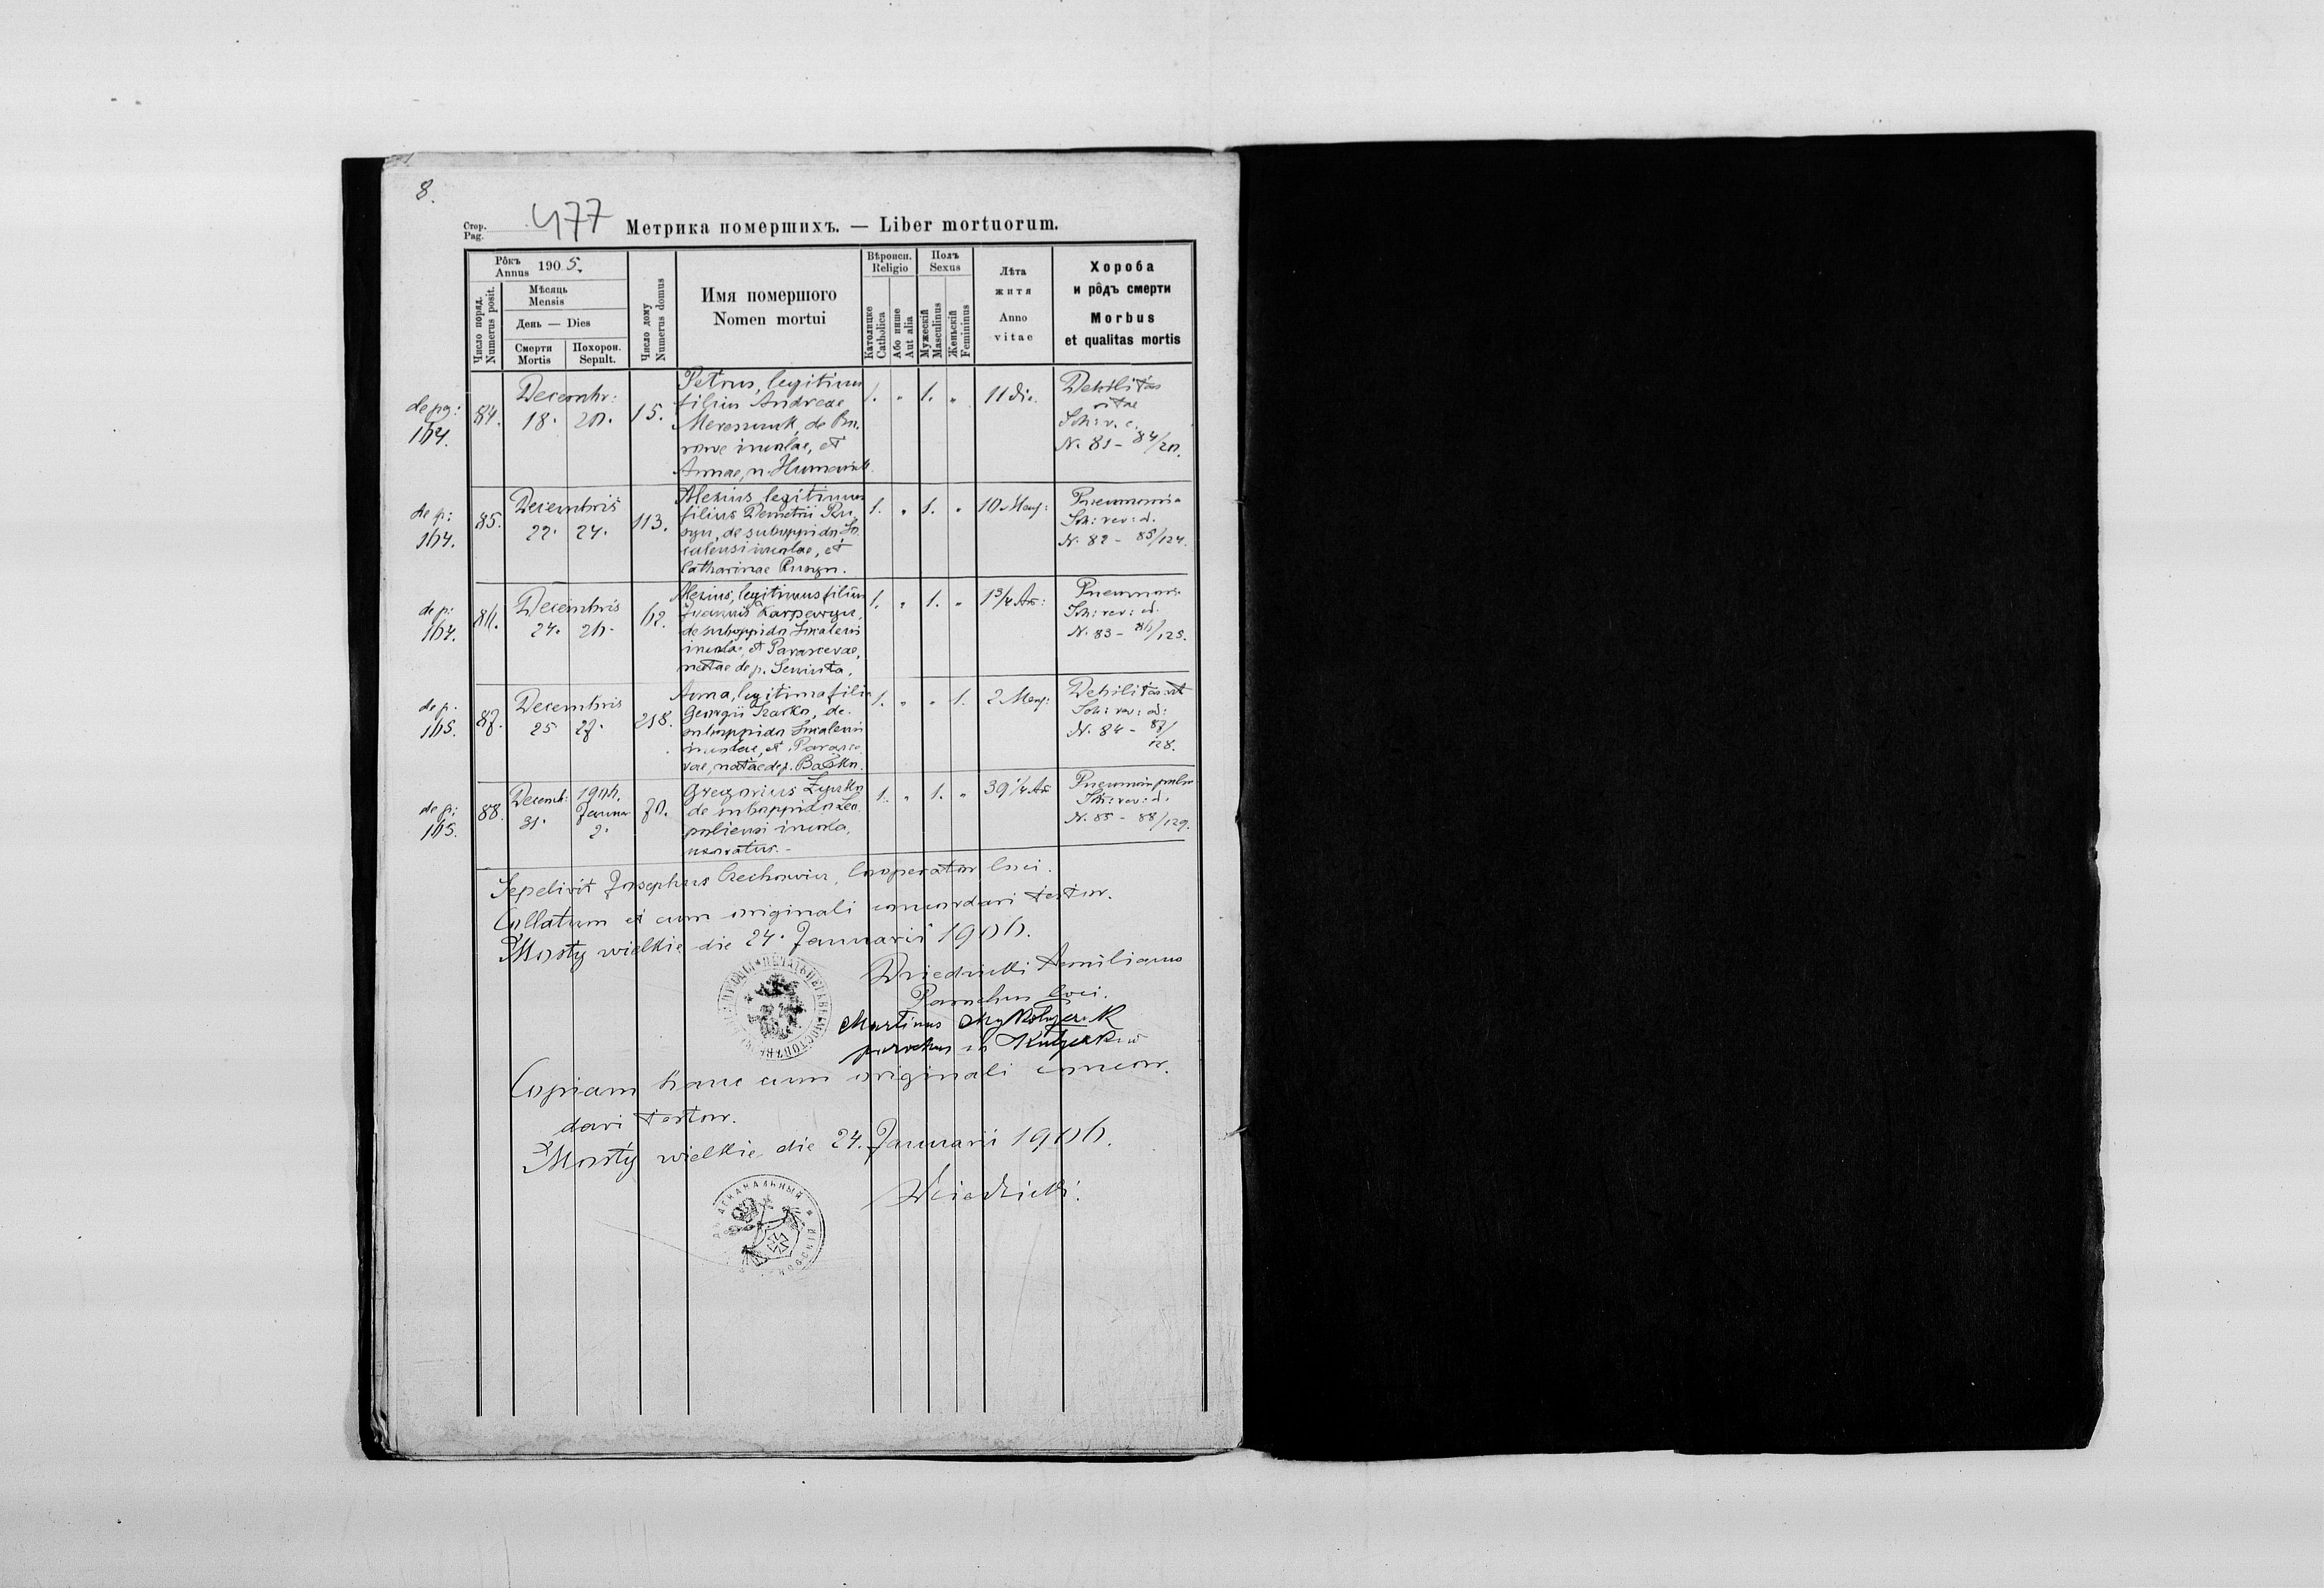 8.
Стор.
Pag.
477
Метрика помершихъ. — Liber mortuorum.
Рôкъ
Annus 1905.
Мѣсяць
Mensis
День — Dies
Смерти
Mortis
Похорон.
Sepult.
Число поряд.
Numerus posit.
Число дому
Numerus domus
Имя помершого
Nomen mortui
Вѣроисп.
Religio
Католицке
Catholica
Або инше
Aut alia
Полъ
Sexus
Мужескій
Masculinus
Женьскій
Femininus
Лѣта
житя
Anno
vitae
Хороба
и рôдъ смерти
Morbus
et qualitas mortis
de pg:
164.
84.
Decembr:
18. 20.
15.
Petrus, legitimus
filius Andreae
de
incolae, et
Annae, n.
1. " 1. "
11 die.
Debilitas
vitae
N. 81 - 84/20.
de p:
164.
85.
Decembris
22. 24.
113.
Alexius, legitimus
filius Demetrii Ru
syn, de suboppido So
calensi incolae, et
Catharinae Rusyn.
1. " 1. "
10 Mens:
Pneumonia
Sch: rev: d.
N. 82 - 85/124.
de p:
164.
86.
Decembris
24. 26.
62.
Alexius, legitimus filius
Ioannis
de suboppido Socalensi
incolae, et Parascevae,
natae de p.
1. " 1. "
1 3/4 An:
Pneumonia
Sch: rev: d.
N. 83 - 86/125.
de p:
165.
87.
Decembris
25 27.
218.
Anna, legitima filia
Georgii de
suboppido Socalensi
incolae, et Parasce
vae, natae de p.
1. " " 1.
2 Mens:
Debilitas vit
Sch: rev: d:
N. 84 - 87/
128.
de p:
165.
88.
Decemb: 1906.
31. Januar
2.
70.
Gregorius
de suboppido Leo
poliensi incola,
uxoratus. -
1. " 1. "
39 1/4 An
Sch: rev: d.
N. 85 - 88/129.
Sepelivit Josephus Czechowicz, Cooperator loci.
Collatum et cum originali concordari testor.
Mosty wielkie die 24. Januarii 1906.
Aemilianus
Parochus loci.
Martinus
parochus in
Copiam hanc cum originali concor.
dari testor.
Mosty wielkie die 24. Januarii 1906.